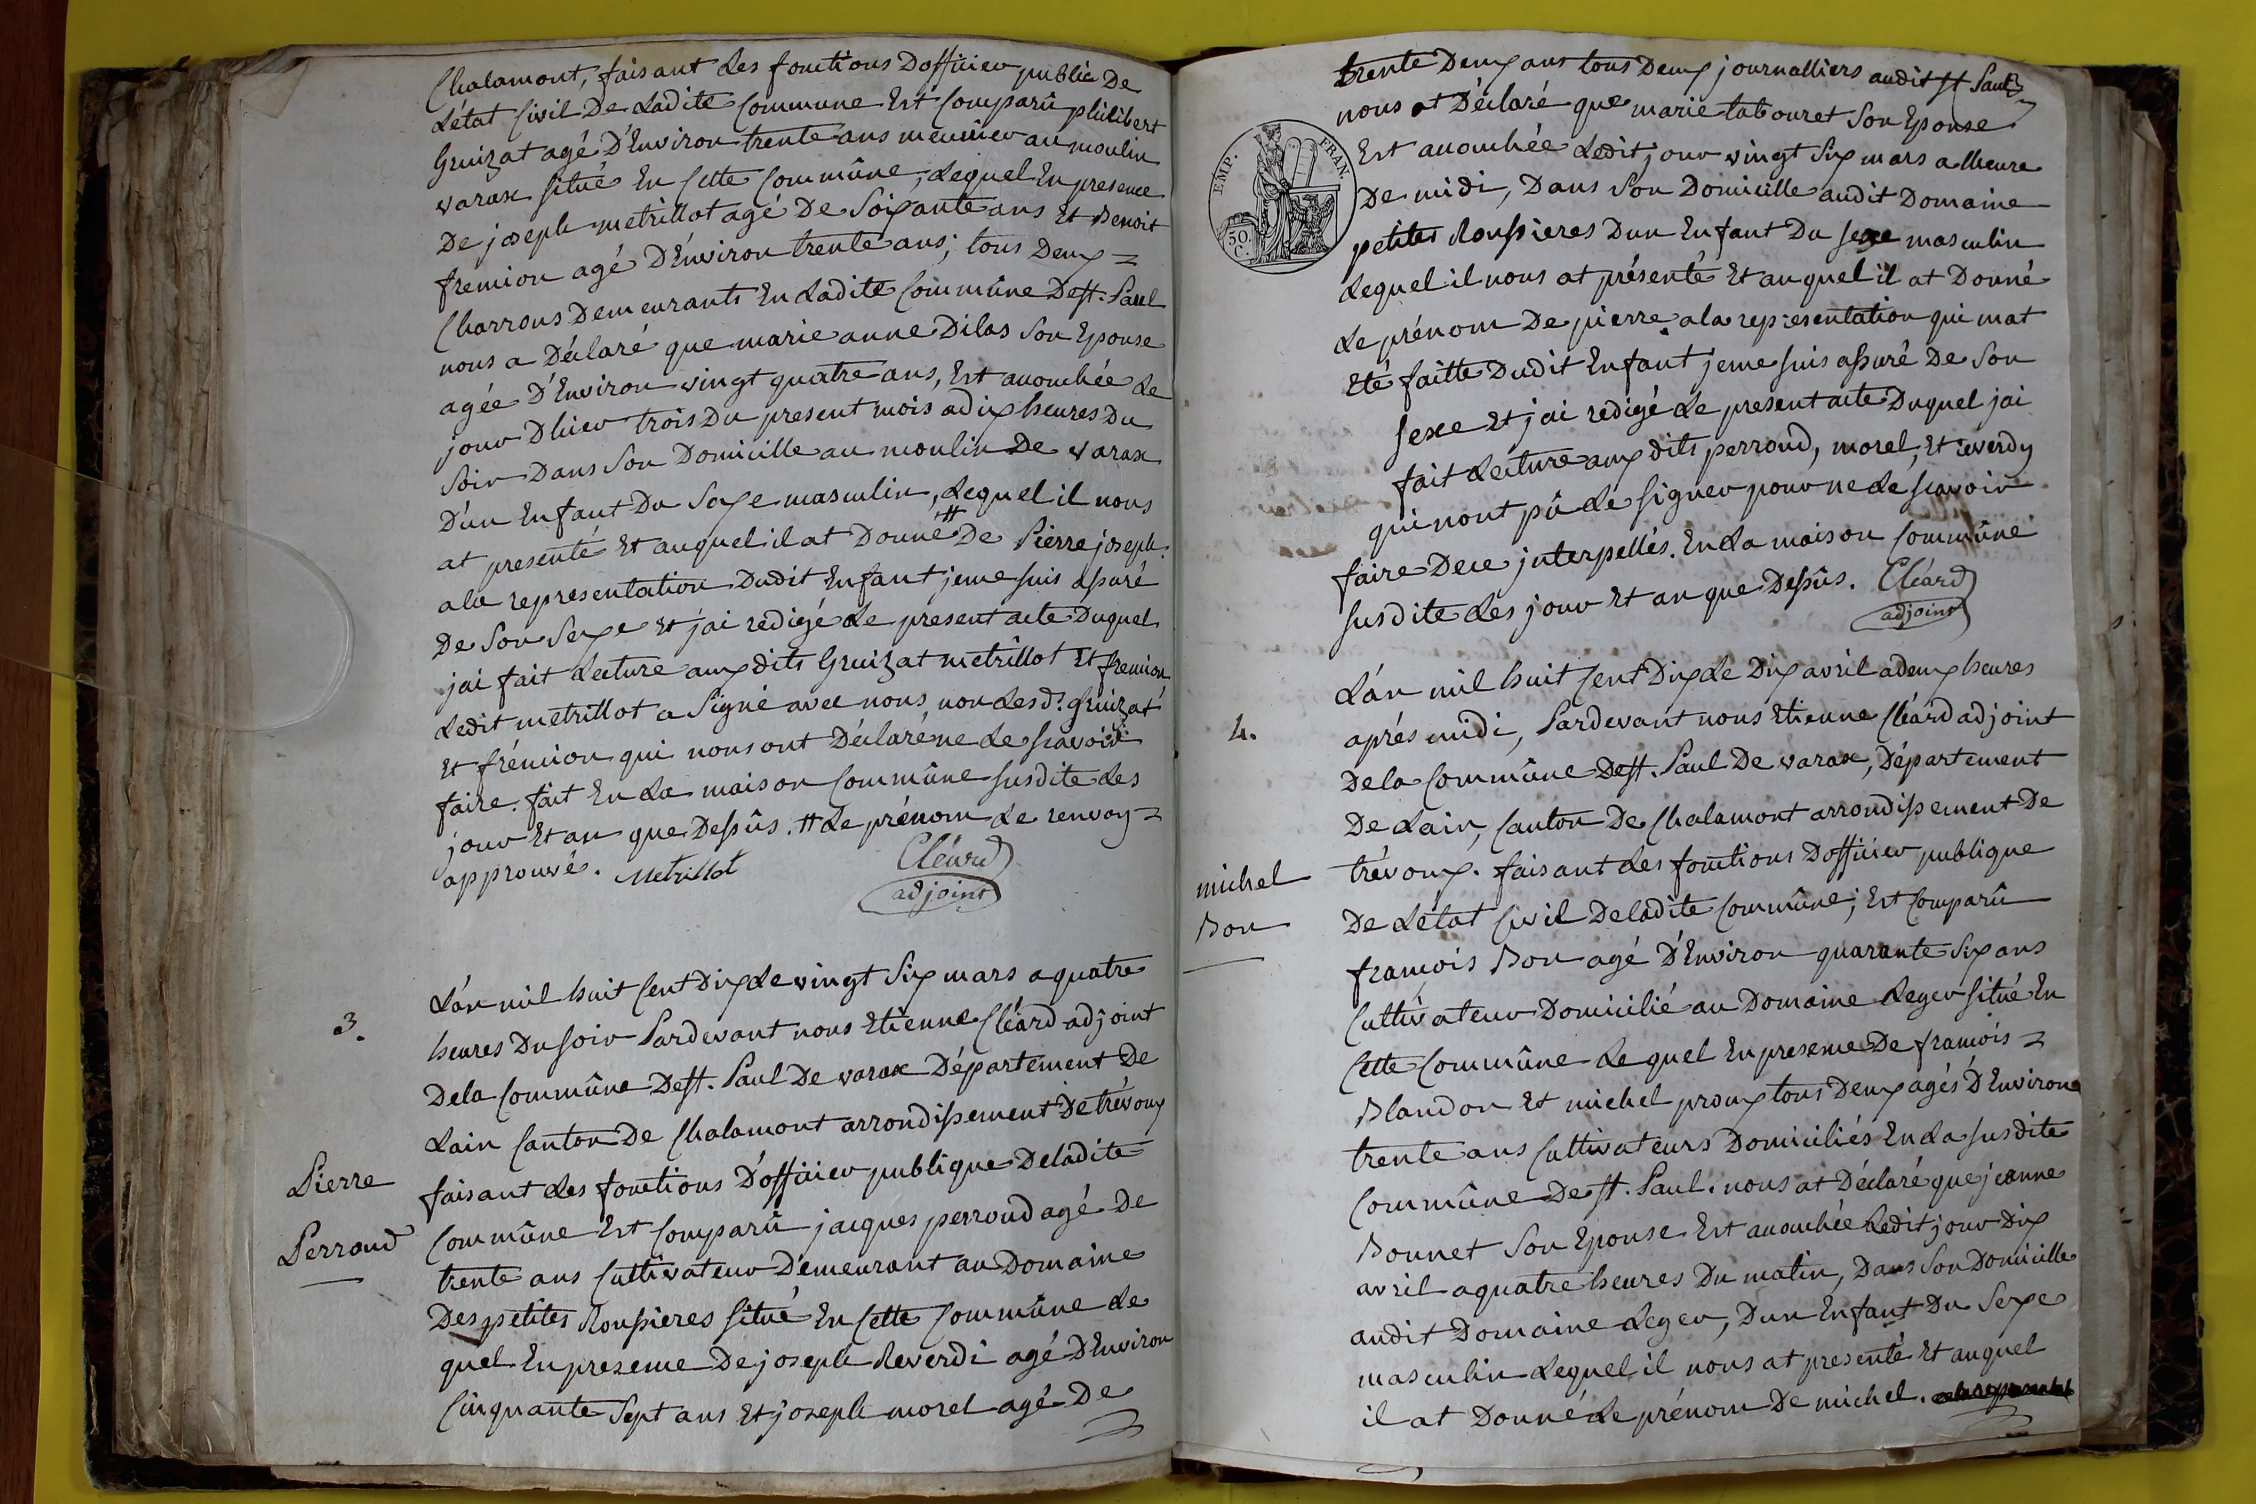 Chalamont, faisant Les fonctions D'officier public De
L'état Civil De Ladite Commune Est Comparû philibert
Gruizat agé D'Environ trente ans meunier au moulin
varax situé En Cette Commûne, Lequel En presence
De joseph metrillot agé De Soixante ans Et Benoit
fremion agé D'Environ trente ans, tous Deux =
Charrons Demeurants En Ladite Commûne De St. Paul
nous a Déclaré que marie anne Dilas Son Epouse
agée D'Environ vingt quatre ans, Est accouchée Le
jour D'hier trois Du present mois a dix heures Du
Soir Dans Son Domicille au moulin De varax
D'un Enfant Du Sexe masculin, Lequel il nous
at presenté Et auquel il at Donné # De Pierre joseph.
a la representation Dudit Enfant je me suis assuré
De Son Sexe Et j'ai redigé Le present acte Duquel
j'ai fait Lecture aux dits Gruizat metrillot Et fremion
Ledit metrillot a Signé avec nous, non Lesd. Gruizat
Et frémion qui nous ont Déclaré ne Le scavoir
faire. fait En La maison Commûne susdite Les
jour Et an que Dessûs. # Le prénom Le renvoy =
approuvé. Metrillot Cléard
adjoint
3.
L'an mil huit Cent Dix Le vingt Six mars a quatre
heures Du soir Pardevant nous Etienne Cléard adjoint
De la Commûne De St. Paul De varax Département De
Lain Canton De Chalamont arrondissement De trévoux
faisant Les fonctions D'officier publique De Ladite
Commûne Est Comparû jacques perroud agé De
trente ans Cultivateur Demeurant au Domaine
Des petites Roussieres situé En Cette Commûne Le
quel En presence De joseph Reverdi agé D'Environ
Cinquante Sept ans Et joseph morel agé De
Pierre
Perroud
trente Deux ans tous Deux journalliers audit St Paul
nous at Déclaré que marie tabouret Son Epouse
Est accouchée Ledit jour vingt Six mars a lheure
De midi, Dans Son Domicille audit Domaine
petites Roussieres D'un Enfant Du sexe masculin
Lequel il nous at présenté Et auquel il at Donné
Le prénom De pierre. a la representation qui mat
Eté faitte Dudit Enfant je me suis assuré De Son
sexe Et j'ai redigé Le present acte Duquel j'ai
fait Lecture aux dits perroud, morel, Et reverdy
qui nont pû Le signer pour ne Le scavoir
faire De ce interpellés. En La maison Commûne
susdite Les jour Et an que Dessûs. Cléard
adjoint
EMP. FRAN.
50. C.
4.
L'an mil huit Cent Dix Le Dix avril a deux heures
aprés midi, Pardevant nous Etienne Cléard adjoint
De la Commûne De St. Paul De varax, Département
De Lain, Canton De Chalamont arrondissement De
trévoux. faisant Les fonctions D'officier publique
De L'état Civil De Ladite Commûne; Est Comparû
françois Bon agé D'Environ quarante Six ans
Cultivateur Domicilié au Domaine Leger situé En
Cette Commûne Le quel En presence De françois =
Blandon Et michel proux tous Deux agés D'Environ
trente ans Cultivateurs Domiciliés En La susdite
Commûne De St. Paul. nous at Déclaré que jeanne
Bonnet Son Epouse Est accouchée Ledit jour Dix
avril a quatre heures Du matin, Dans Son Domicille
audit Domaine Leger, D'un Enfant Du Sexe
masculin Lequel il nous at presenté Et auquel
il at Donné Le prénom De michel.
michel
Bon